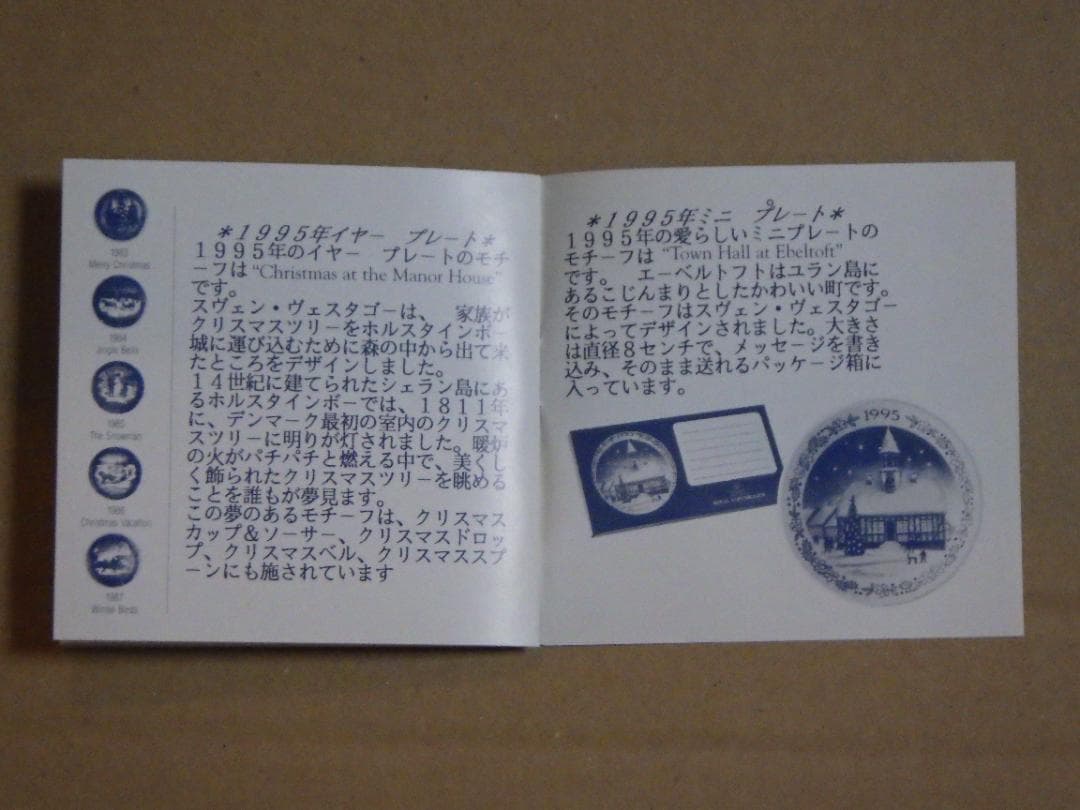 1983
Merry Christmas
1984
Jingle Bells
1985
The Snowman
1986
Christmas Vacation
1987
Winter Birds
＊１９９５年イヤー　プレート＊
１９９５年のイヤー　プレートのモチ
ーフは “Christmas at the Manor House”
です。
スヴェン・ヴェスタゴーは、　家族が
クリスマスツリーをホルスタインボー
城に運び込むために森の中から出て来
たところをデザインしました。
１４世紀に建てられたシェラン島にあ
るホルスタインボーでは、１８１１年
に、デンマーク最初の室内のクリスマ
スツリーに明りが灯されました。暖炉
の火がパチパチと燃える中で、美くし
く飾られたクリスマスツリーを眺める
ことを誰もが夢見ます。
この夢のあるモチーフは、クリスマス
カップ＆ソーサー、クリスマスドロッ
プ、クリスマスベル、クリスマススプ
ーンにも施されています
＊１９９５年ミニ　プレート＊
１９９５年の愛らしいミニプレートの
モチーフは “Town Hall at Ebeltoft”
です。　エーベルトフトはユラン島に
あるこじんまりとしたかわいい町です。
そのモチーフはスヴェン・ヴェスタゴー
によってデザインされました。大きさ
は直径８センチで、メッセージを書き
込み、そのまま送れるパッケージ箱に
入っています。
1995